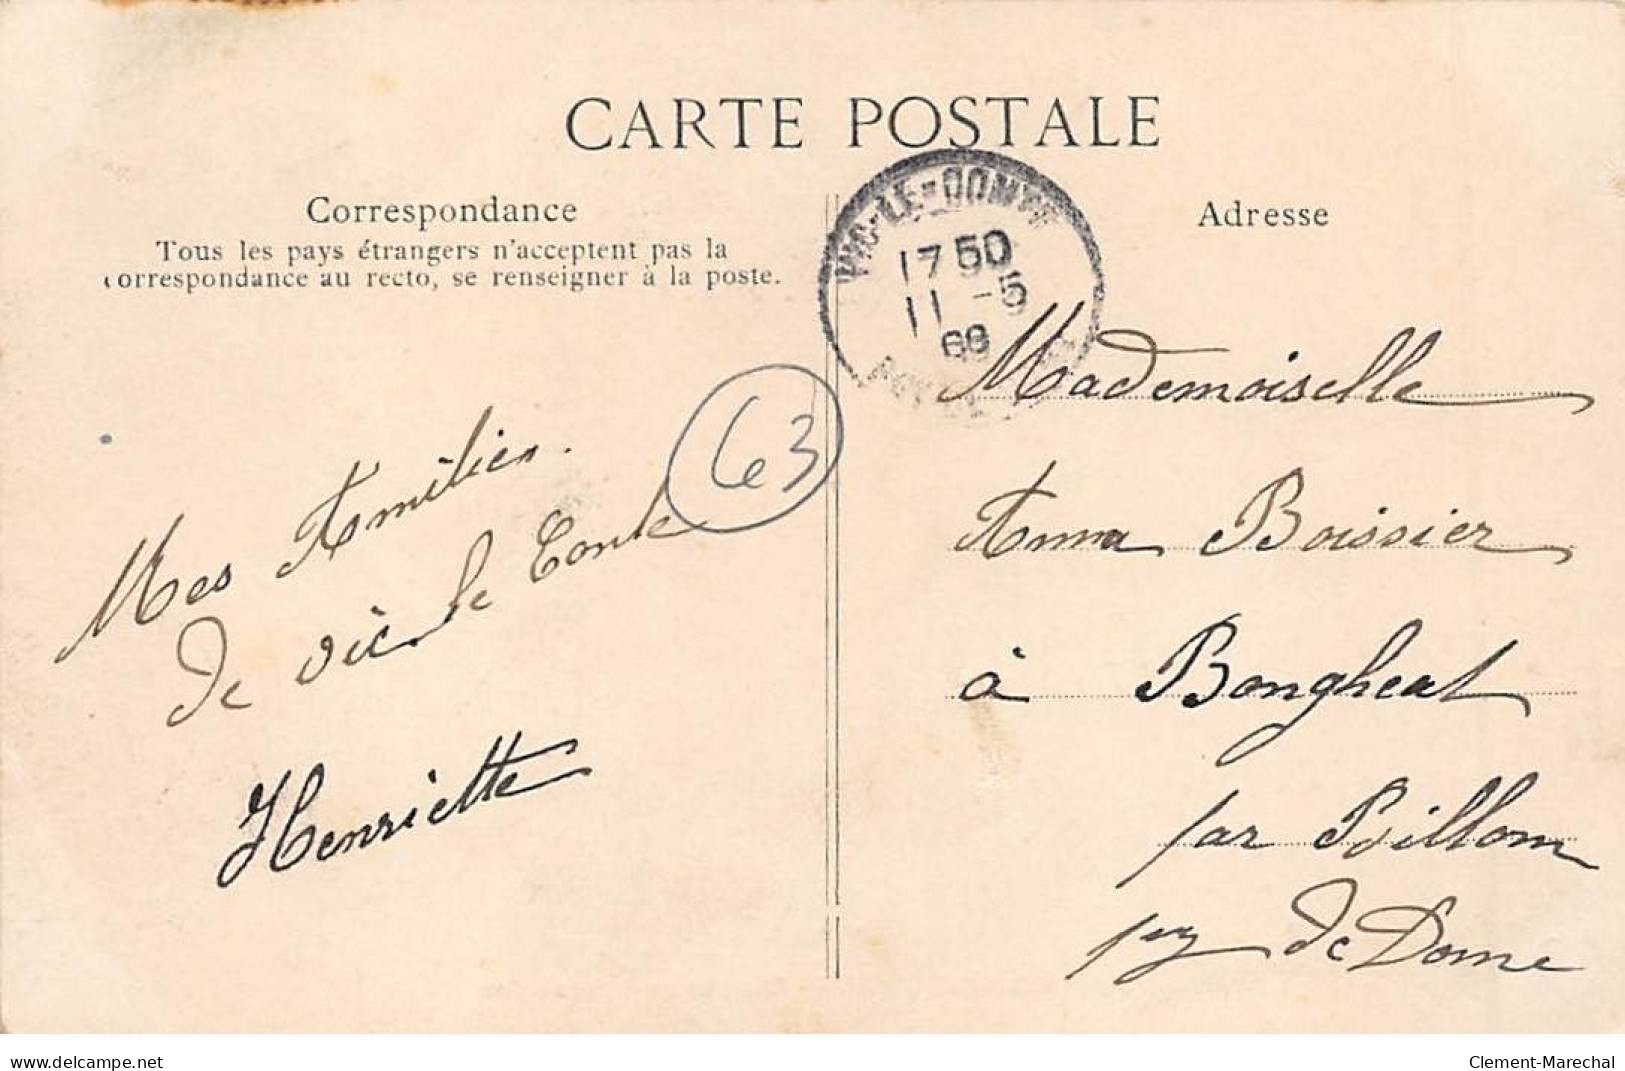 CARTE POSTALE
Correspondance
Tous les pays étrangers n'acceptent pas la
correspondance au recto, se renseigner à la poste.
Adresse
VIC-LE-COMTE
17 50
11 -5
08
63
Mes Amitiés.
de vic le Comte
Henriette
Mademoiselle
Anna Boissier
à Bongheat
par Billom
puy de Dome
www.delcampe.net
Clement-Marechal